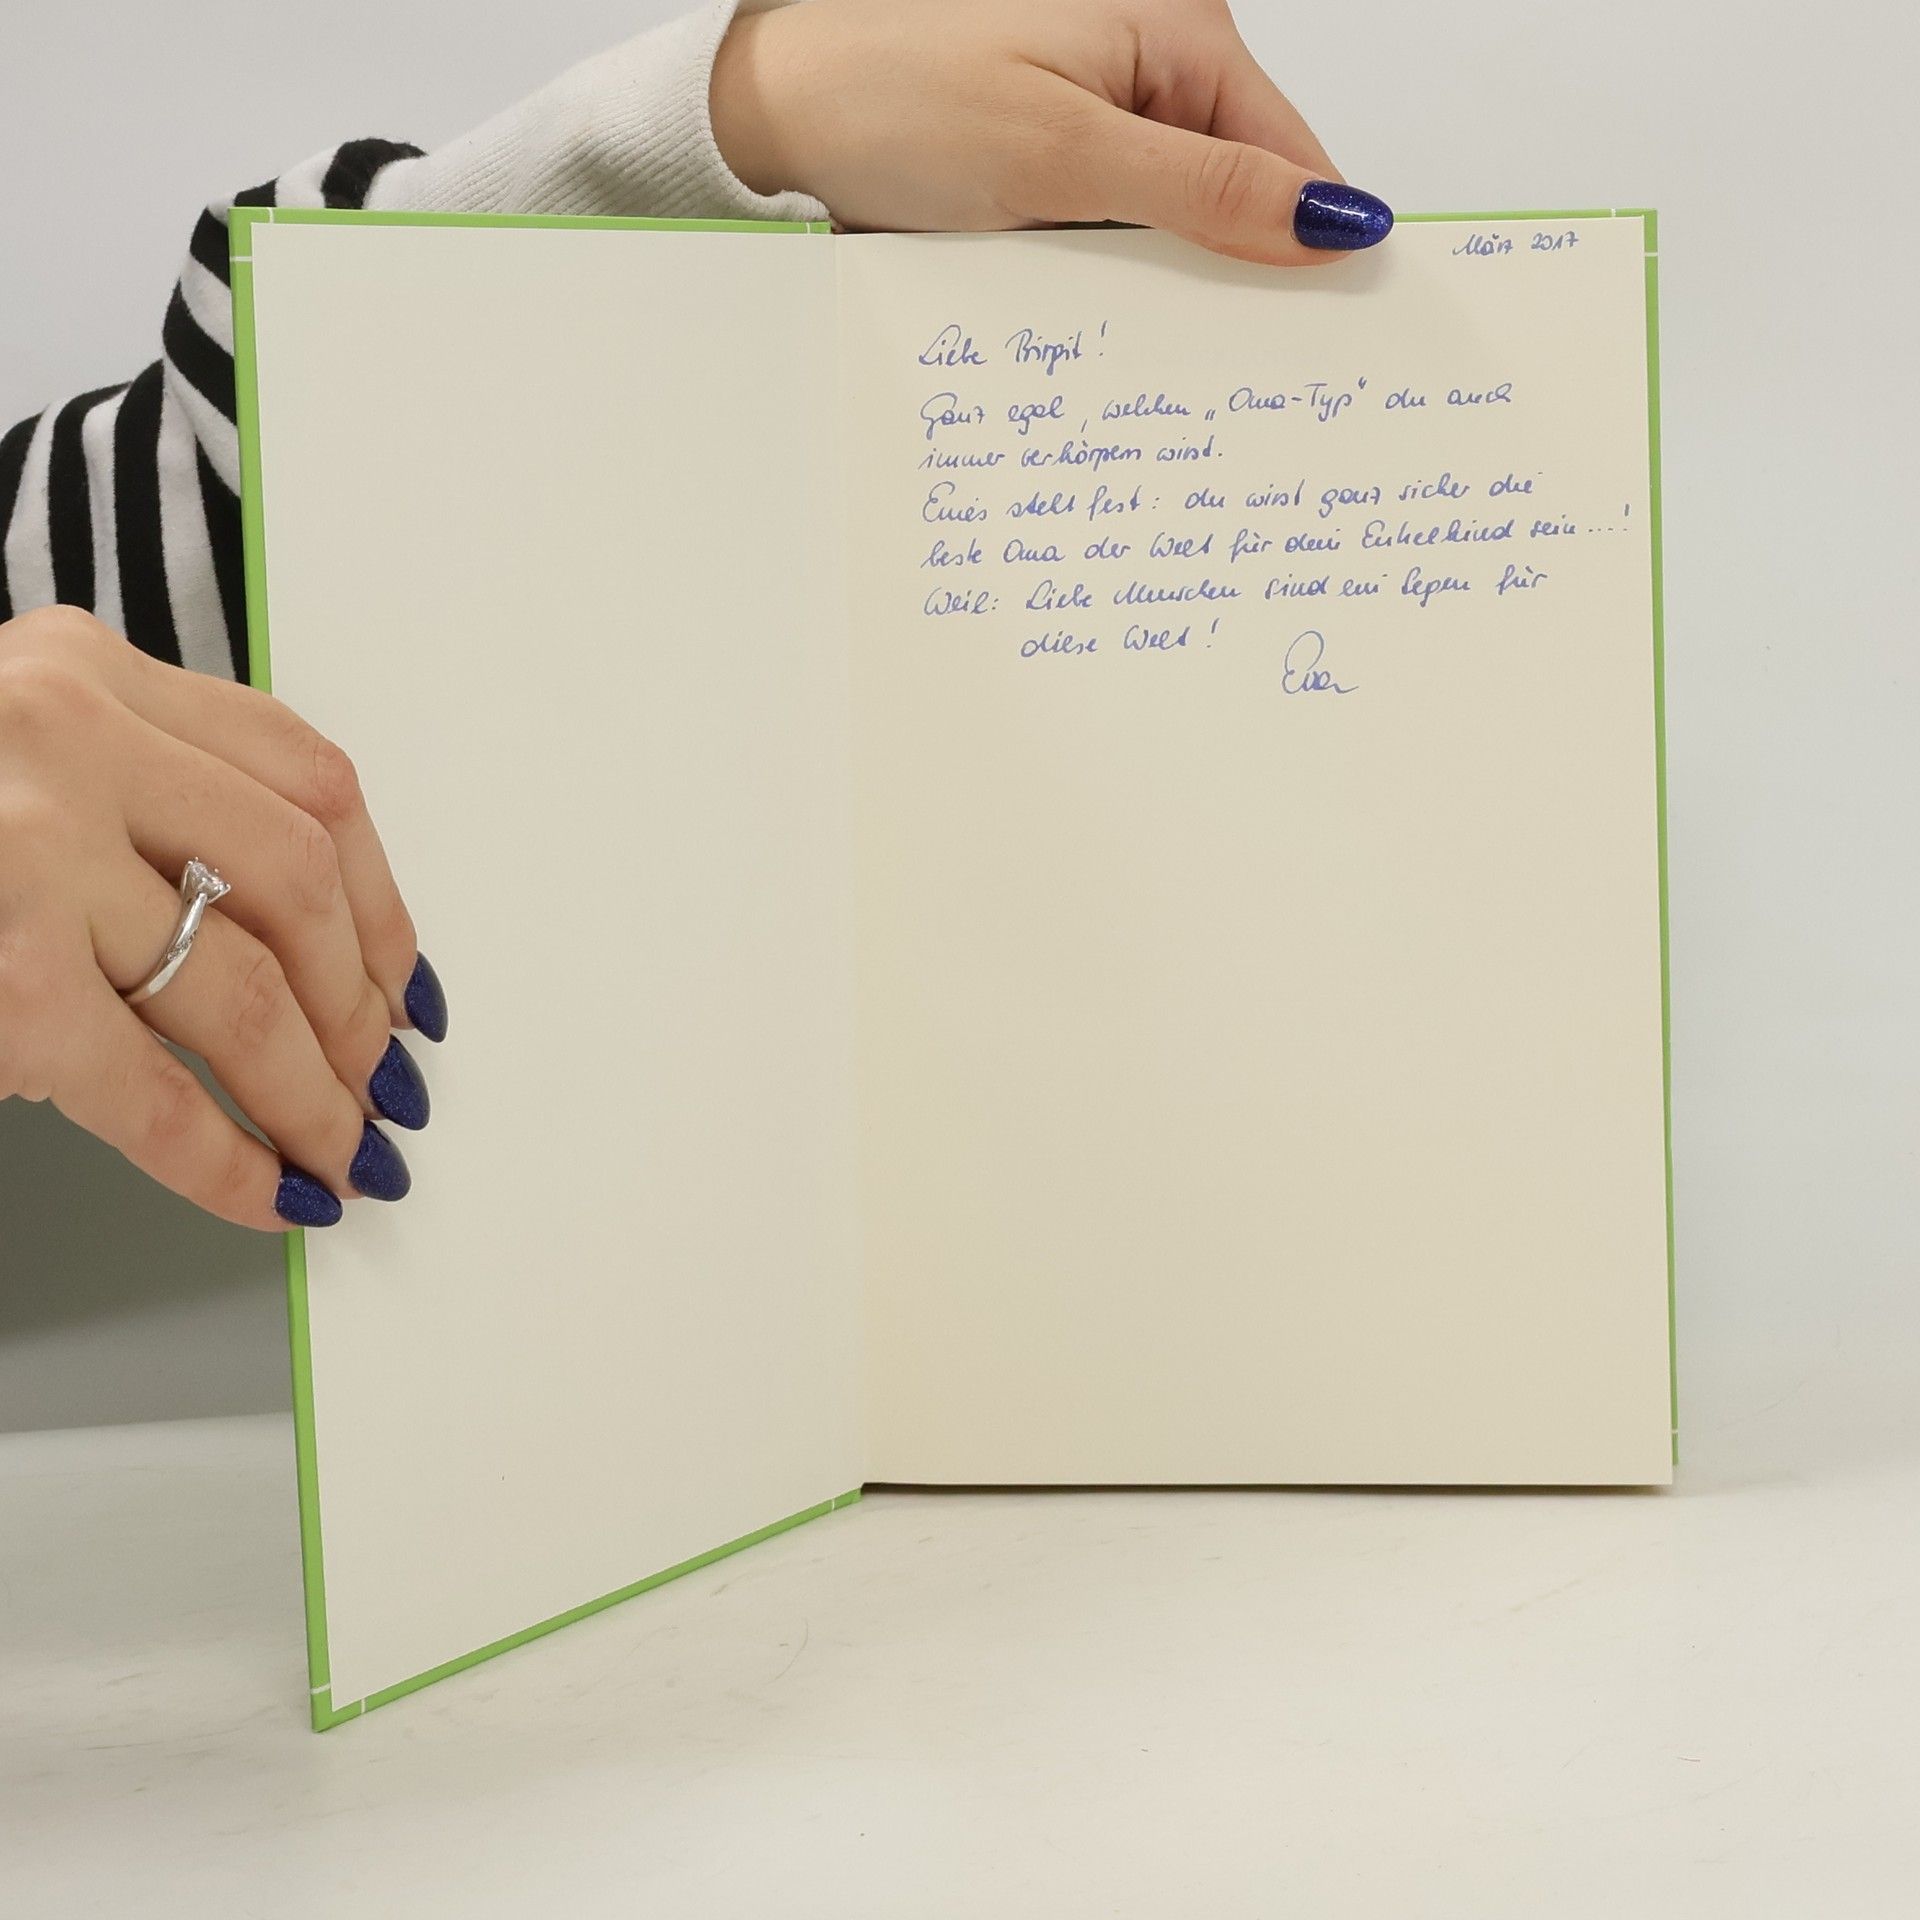 März 2017
Liebe Birgit!
Ganz egal, welchen „Oma-Typ“ du auch
immer verkörpern wirst.
Eines steht fest: du wirst ganz sicher die
beste Oma der Welt für dein Enkelkind sein ...!
Weil: Liebe Menschen sind ein Segen für
diese Welt!
Eva